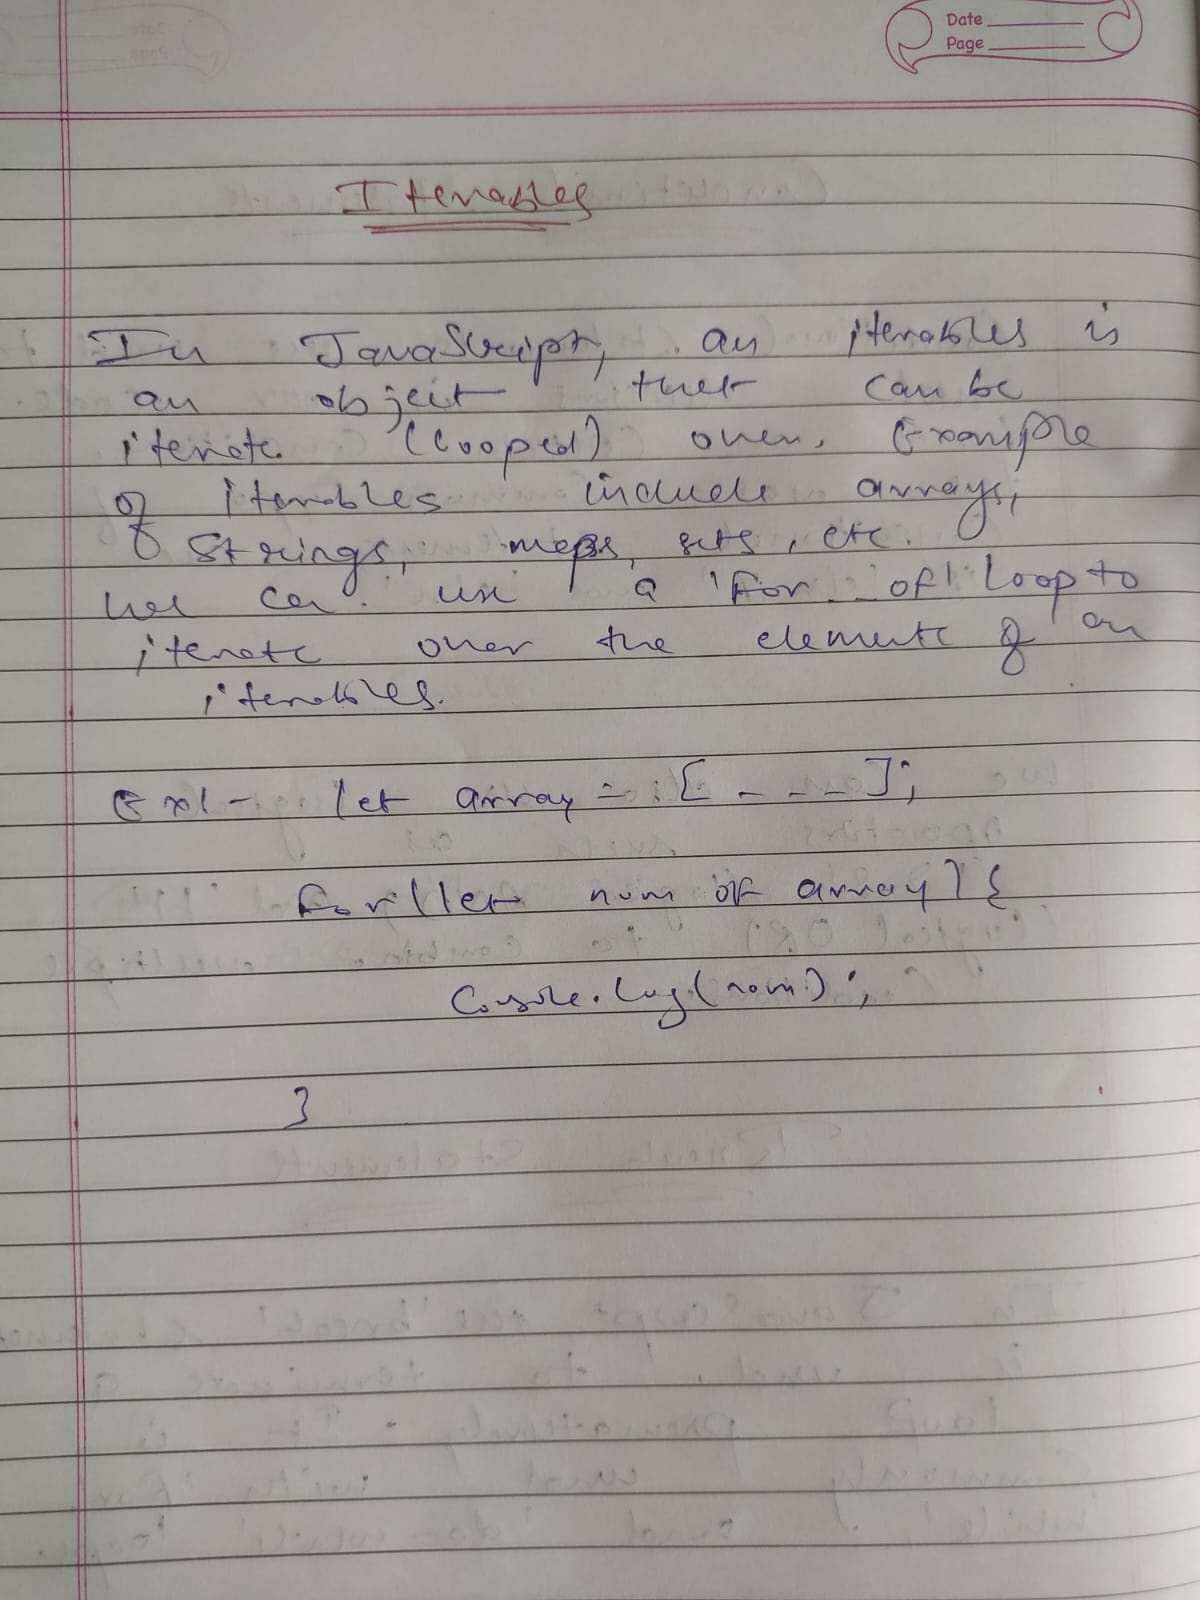 Date
Page
Iterables
In JavaScript, an iterables is
an object that can be
iterate (looped) over. Example
of iterables include arrays,
Strings, maps, sets, etc.
we can use a 'for...of' loop to
iterate over the elements of an
iterables.
Ex:- let array = [ - - - ];
for(let num of array) {
Console.log(num);
}